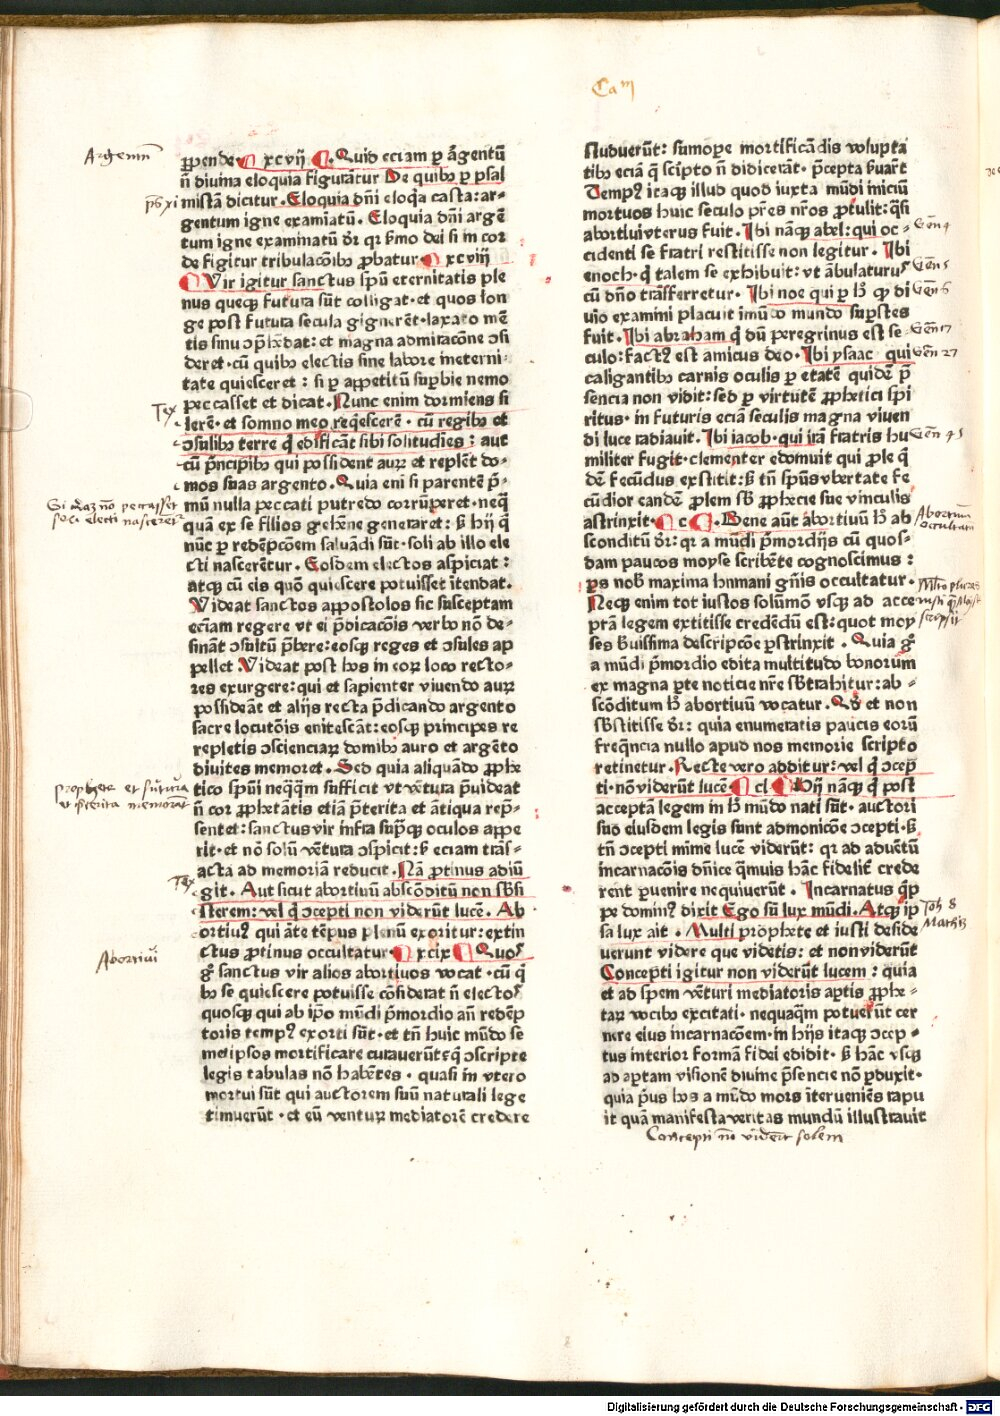 Ca m
Argentum
p̄s xi
Tex
Si adaz nō peccasset
soli electi nascerēt
prophete et futura
et p̄terita memorāt
Tex
Abortiui
ꝓpende xcvij Quid eciam ꝑ argentū
n̄ diuina eloquia figurātur De quibꝫ ꝑ psal
mistā dicitur. Eloquia dn̄i eloq̄a casta: ar-
gentum igne examiatū. Eloquia dn̄i argē
tum igne examinatū dr̄ qꝛ ẜmo dei si m cor
de figitur tribulacōibꝫ ꝓbatur xcviij
Vir igitur sanctus spū eternitatis ple
nus queqꝫ futura sūt colligat. et quos lon
ge post futura secula gignerēt. laxato mē
tis sinu ↄp̄hēdat: et magna admiracōne ↄsi
deret. cū quibꝫ electis sine labore ineterni-
tate quiesceret: si ꝑ appetitū suꝑbie nemo
peccasset et dicat. Nunc enim dormiens si
lerē. et somno meo reqescerē. cū regibꝫ et
ↄsulibꝫ terre q̄ edificāt sibi solitudīes: aut
cū p̄ncipibꝫ qui possident auꝝ et replēt do-
mos suas argento. Quia eni si parentē p̄-
mū nulla peccati putredo corrūperet. neqꝫ
quā ex se filios gehēne generaret: ẜ hij q̄
nūc ꝑ redēpcōem saluādi sūt. soli ab illo ele
cti nascerētur. Eosdem electos aspiciat:
atqꝫ cū eis quō quiescere potuisset ītendat.
Videat sanctos appostolos sic susceptam
ecc̄iam regere vt ei p̄dicacōis verbo nō de-
sināt ↄsultū p̄bere: eosqꝫ reges et ↄsules ap
pellet Videat post hos in eoꝝ loco recto-
res exurgere: qui et sapienter viuendo auꝝ
possideāt et alijs recta p̄dicando argento
sacre locutōis enitescāt: eosqꝫ principes re
repletis ↄscienciaꝝ domibꝫ auro et argēto
diuites memoret. Sed quia aliquādo ꝓphe
tico spūi neq̄q̄m sufficit vt vētura p̄uideat
n̄ cor ꝓphetātis etiā p̄terita et ātiqua rep̄-
sentet: sanctus vir infra sup̄qꝫ oculos appe
rit. et nō solū vētura ↄspicit: ẜ eciam trās-
acta ad memoriā reducit. Nā ꝓtinus adiū
git. Aut sicut abortiuū abscōditū non sb̄si
sterem: vel q̄ ↄcepti non viderūt lucē. Ab
ortiuꝯ qui āte tēpus plenū exoritur: extin
ctus ꝓtinus occultatur xcix Quoꝝ
gͦ sanctus vir alios abortiuos vocat. cū q̄
bꝫ se quiescere potuisse cōsiderat n̄ electoꝝ
quosqꝫ qui ab ip̄o mūdi p̄mordio an̄ redēp
toris tempꝯ exorti sūt. et tn̄ huic mūdo se
metipsos mortificare curauerūt: q̄ ↄscripte
legis tabulas nō habētes. quasi in vtero
mortui sūt qui auctorem suū naturali lege
timuerūt. et eū venturꝝ mediatorē credere
studuerūt: sumope mortificādis volupta
tibꝫ eciā q̄ scͥpto n̄ didicerāt. p̄cepta ẜuarēt
Tempꝯ itaqꝫ illud quod iuxta mūdi iniciū
mortuos huic seculo pr̄es nr̄os ꝓtulit: q̄si
abortiui vterus fuit. Ibi nāqꝫ abel: qui oc-
cidenti se fratri restitisse non legitur. Ibi
enoch. q̄ talem se exhibuit: vt ābulaturꝯ
cū dn̄o trāsferretur. Ibi noe qui ꝑ hͦ ꝙ di
uio examini placuit imūdo mundo suꝑstes
fuit. Ibi abraham q̄ dū peregrinus est se-
culo: factꝯ est amicus deo. Ibi ysaac qui
caligantibꝫ carnis oculis ꝑ etatē quidē p̄
sencia non vidit: sed ꝑ virtutē ꝓphetici spi
ritus. in futuris eciā seculis magna viuen
di luce radiauit. Ibi iacob. qui irā fratris hu
militer fugit. clementer edomuit qui ꝓle q̄
dē fecūdus exstitit: ẜ tn̄ spūs vbertate fe
cūdior eandē ꝓlem sb̄ ꝓphecie sue vinculis
astrinxit. c Bene aūt abortiuū hͦ ab
sconditū dr̄: qꝛ a mūdi p̄mordijs cū quos-
dam paucos moyse scribēte cognoscimus:
ps nob̄ maxima hnmani gn̄is occultatur.
Neqꝫ enim tot iustos solūmō vsqꝫ ad acce
ptā legem extitisse credēdū est: quot moy
ses b̄uissima descripcōe ꝑstrinxit. Quia gͦ
a mūdi p̄mordio edita multitudo bonorum
ex magna ꝑte noticie nr̄e sb̄trahitur: ab-
scōditum hͦ abortiuū vocatur. Qd̄ et non
sb̄stitisse dr̄: quia enumeratis paucis eorū
freq̄ncia nullo apud nos memorie scripto
retinetur. Recte vero additur: vel q̄ ↄcep̄
ti. nō viderūt lucē cl Hij nāqꝫ q̄ post
acceptā legem in hͦ mūdo nati sūt. auctori
suo eiusdem legis sunt admonicōe ↄcepti. ẜ
tn̄ ↄcepti mime lucē viderūt: qꝛ ad aduētū
incarnacōis dn̄ice q̄muis hāc fidelit̄ crede
rent ꝑuenire nequiuerūt. Incarnatus q̄p
pe dominꝯ dixit Ego sū lux mūdi. Atqꝫ ip
sa lux ait. Multi prophete et iusti deside
uerunt videre que videtis: et non viderūt
Concepti igitur non viderūt lucem: quia
et ad spem vēturi mediatoris aꝑtis ꝓphe-
taꝝ vocibꝫ excitati. nequaq̄m potuerūt cer
nere eius incarnacōem. in hijs itaqꝫ ↄcep-
tus interior formā fidei edidit. ẜ hāc vsqꝫ
ad aꝑtam visionē diuine p̄sencie nō ꝑduxit.
quia p̄us hos a mūdo mors īterueniēs rapu
it quā manifesta veritas mundū illustrauit
Gen̄ 4
Gen̄ 5
Gen̄ 6
Gen̄ 27
Gen̄ 45
Abortiuum
occultatū
Joh 8
Concepti nō viderūt solem
Digitalisierung gefördert durch die Deutsche Forschungsgemeinschaft - DFG